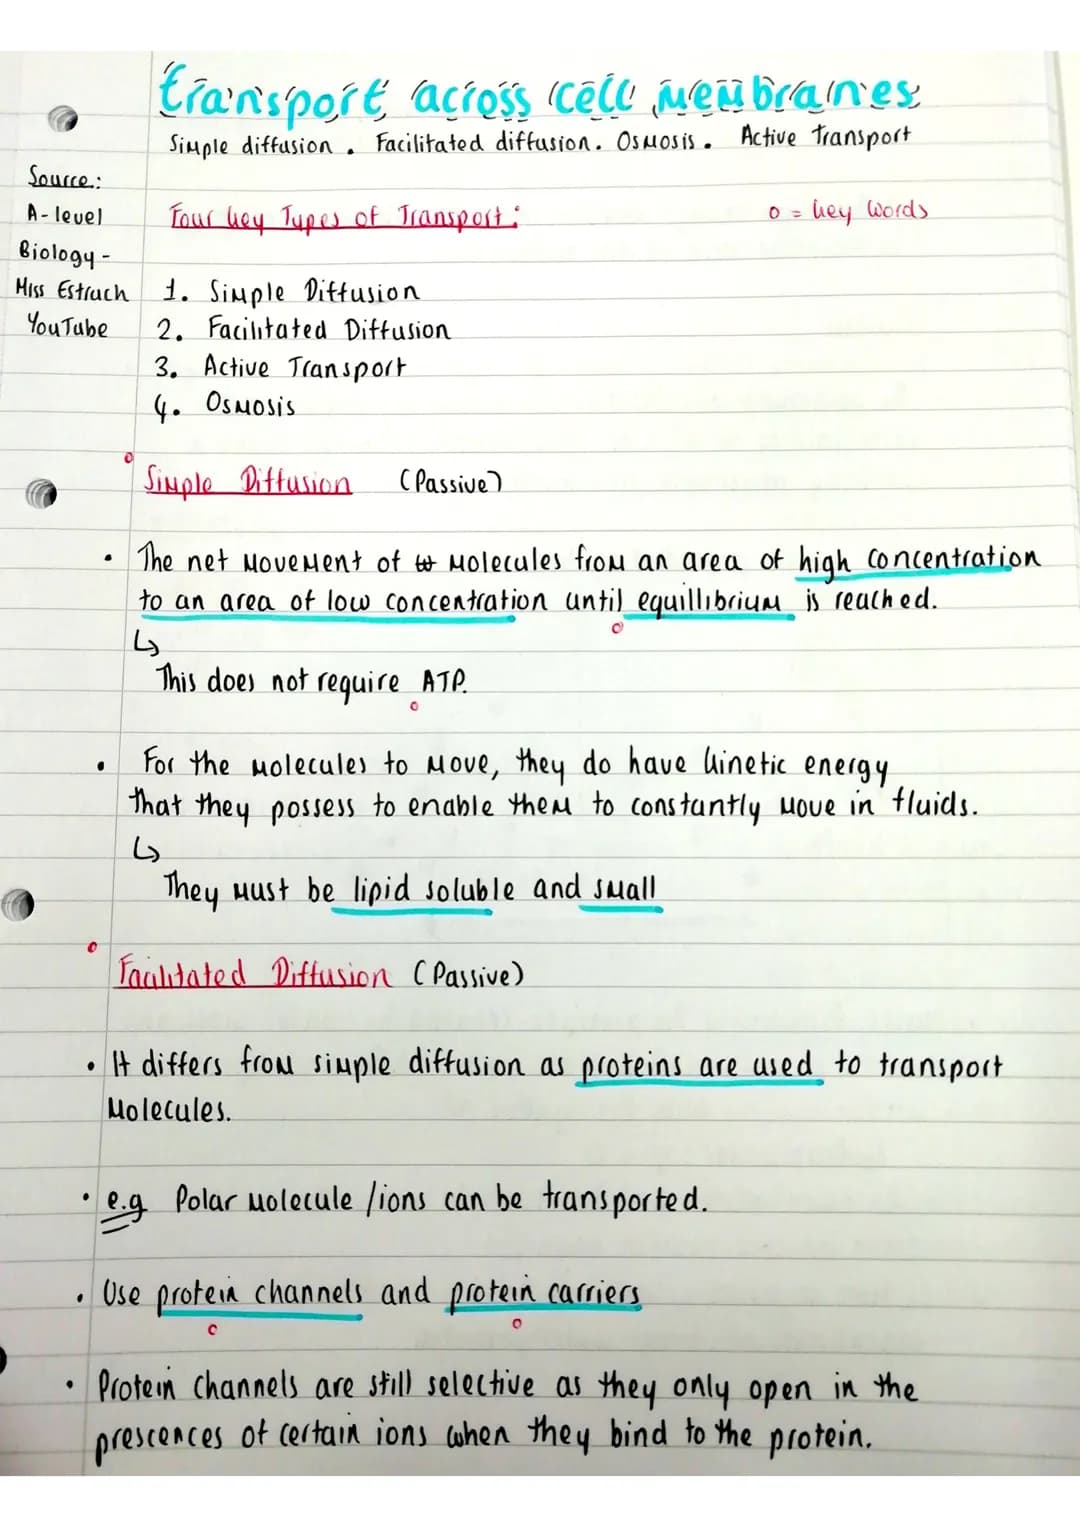 Transport across cell membranes
Simple diffusion. Facilitated diffusion. Osmosis. Active Transport
Source:
A-level
Biology -
Miss Estruch
YouTube
Four key Types of Transport:
o = key words
1. Simple Diffusion
2. Facilitated Diffusion
3. Active Transport
4. Osmosis
Simple Diffusion (Passive)
• The net movement of molecules from an area of high concentration
to an area of low concentration until equillibrium is reached.
↳
This does not require ATP.
• For the molecules to move, they do have kinetic energy
that they possess to enable them to constantly move in fluids.
↳
They must be lipid soluble and small
Facilitated Diffusion (Passive)
• It differs from simple diffusion as proteins are used to transport
Molecules.
• e.g Polar molecule /ions can be transported.
• Use protein channels and protein carriers
• Protein channels are still selective as they only open in the
prescences of certain ions when they bind to the protein.